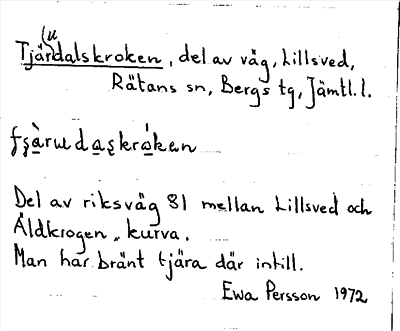 (u
Tjärdalskroken, del av väg, Lillsved,
Rätans sn, Bergs tg, Jämtl.l.
Del av riksväg 81 mellan Lillsved och
Äldkrogen „ kurva.
Man har bränt tjära där intill.
Ewa Persson 1972